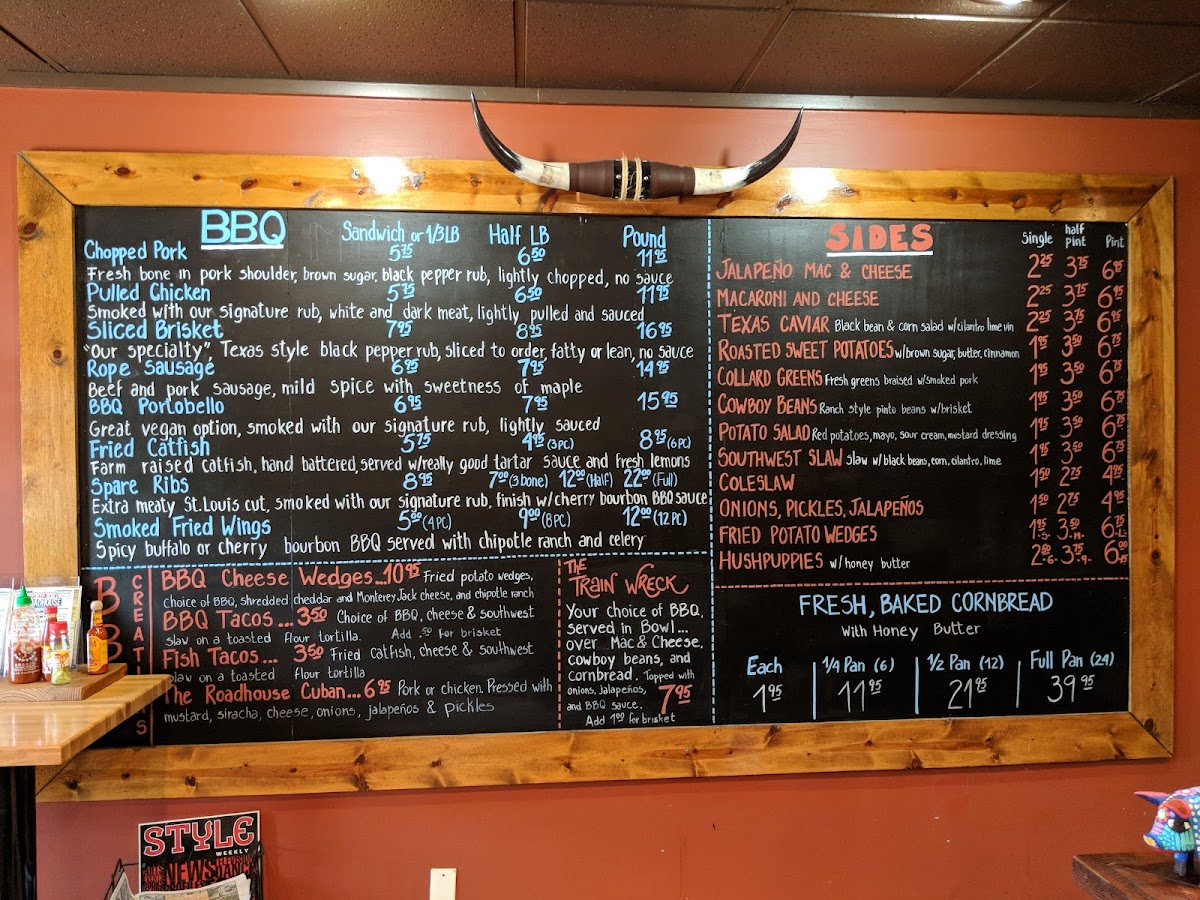 BBQ
Sandwich or 1/3LB Half LB Pound
Chopped Pork 5.75 6.50 11.95
Fresh bone in pork shoulder, brown sugar, black pepper rub, lightly chopped, no sauce
Pulled Chicken 5.75 6.50 11.95
Smoked with our signature rub, white and dark meat, lightly pulled and sauced
Sliced Brisket 7.95 8.95 16.95
"Our specialty", Texas style black pepper rub, sliced to order, fatty or lean, no sauce
Rope Sausage 6.95 7.95 14.95
Beef and pork sausage, mild spice with sweetness of maple
BBQ Portobello 6.95 7.95 15.95
Great vegan option, smoked with our signature rub, lightly sauced
Fried Catfish 5.75 4.95 (3PC) 8.95 (6PC)
Farm raised catfish, hand battered, served w/really good tartar sauce and fresh lemons
Spare Ribs 8.95 7.00 (3 bone) 12.00 (Half) 22.00 (Full)
Extra meaty St. Louis cut, smoked with our signature rub, finish w/cherry bourbon BBQ sauce
Smoked Fried Wings 5.00 (4 PC) 9.00 (8 PC) 12.00 (12 PC)
Spicy buffalo or cherry bourbon BBQ served with chipotle ranch and celery
BBQ Cheese Wedges...10.95 Fried potato wedges,
choice of BBQ, shredded cheddar and Monterey Jack cheese, and chipotle ranch
BBQ Tacos ... 3.50 Choice of BBQ, cheese & southwest
slaw on a toasted flour tortilla. Add .50 for brisket
Fish Tacos ... 3.50 Fried catfish, cheese & southwest
slaw on a toasted flour tortilla
The Roadhouse Cuban...6.95 Pork or chicken. Pressed with
mustard, siracha, cheese, onions, jalapeños & pickles
THE
TRAIN WRECK
Your choice of BBQ,
served in Bowl...
over Mac & Cheese,
cowboy beans, and
cornbread. Topped with
onions, jalapeños,
and BBQ sauce. 7.95
Add 1.00 for brisket
SIDES
Single half pint Pint
JALAPEÑO MAC & CHEESE 2.25 3.75 6.95
MACARONI AND CHEESE 2.25 3.75 6.95
TEXAS CAVIAR Black bean & corn salad w/cilantro lime vin 2.25 3.75 6.95
ROASTED SWEET POTATOES w/brown sugar, butter, cinnamon 1.95 3.50 6.75
COLLARD GREENS Fresh greens braised w/smoked pork 1.95 3.50 6.75
COWBOY BEANS Ranch style pinto beans w/brisket 1.95 3.50 6.75
POTATO SALAD Red potatoes, mayo, sour cream, mustard dressing 1.95 3.50 6.75
SOUTHWEST SLAW Slaw w/black beans, corn, cilantro, lime 1.95 3.50 6.75
COLESLAW 1.50 2.75 4.95
ONIONS, PICKLES, JALAPEÑOS 1.50 2.75 4.95
FRIED POTATO WEDGES 1.95 -S- 3.50 -M- 6.75 -L-
HUSHPUPPIES w/ honey butter 2.00 3.75 6.00
FRESH, BAKED CORNBREAD
With Honey Butter
Each 1/4 Pan (6) 1/2 Pan (12) Full Pan (24)
1.95 11.95 21.95 39.95
STYLE
WEEKLY
NEWS